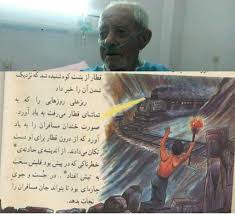 قطار از پشت کوه شنیده شد که نزدیک
شدن آن را خبر داد
ریزعلی روزهایی را که به
تماشای قطار می‌رفت به یاد آورد.
صورت خندان مسافران را به یاد
آورد که از درون قطار برای او دست
تکان می‌دادند. از اندیشه‌ی حادثه‌ی
خطرناکی که در پیش بود قلبش سخت
به تپش افتاد. در جست و جوی
چاره‌ای بود تا بتواند جان مسافران را
نجات بدهد.